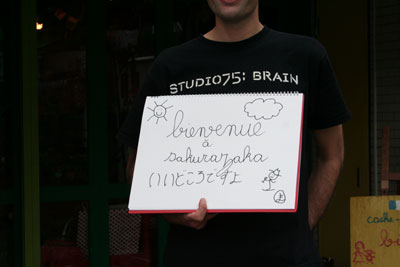 STUDIO75: BRAIN
bienvenue
à
sakurazaka
いいところですよ